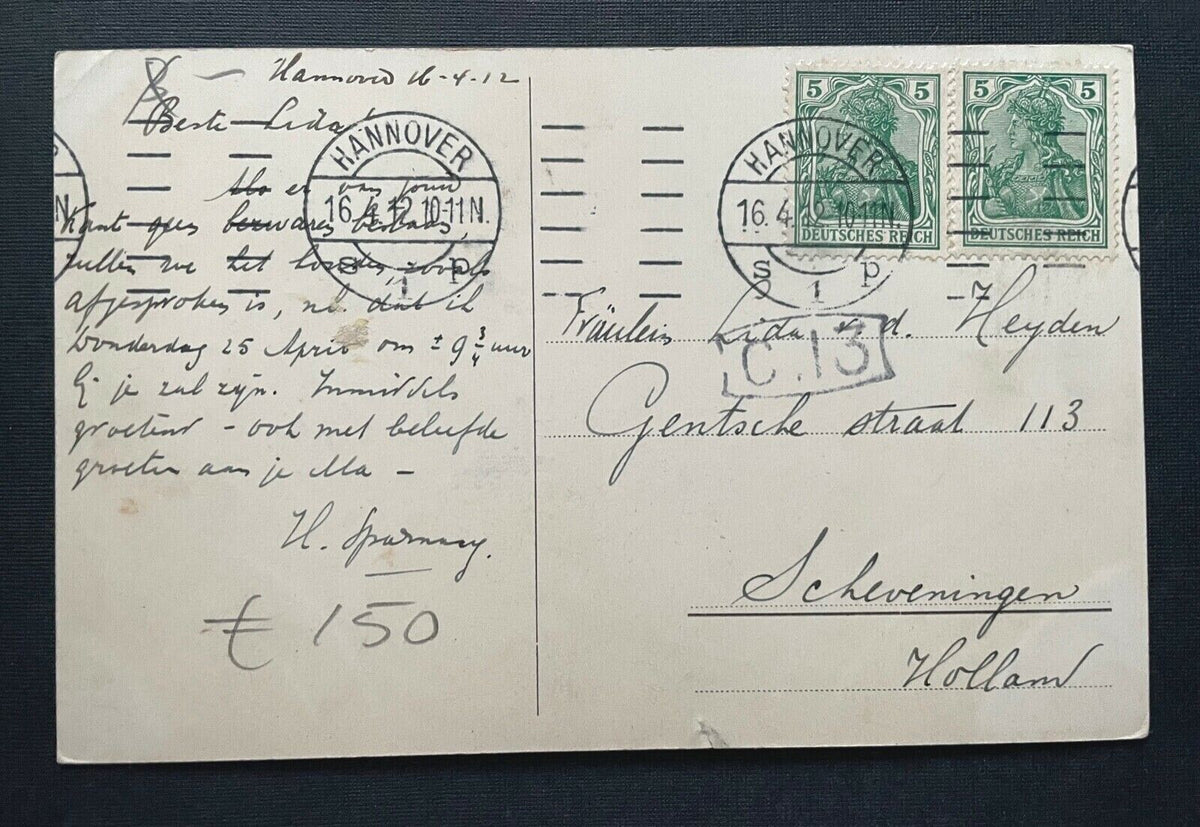 Hannover 16-4-12
Beste Lida!
Als er van jouw
kant geen bezwaren bestaan,
zullen we het houden, zooals
afgesproken is, nl. dat ik
Donderdag 25 April om ± 9 3/4 uur
bij je zal zijn. Inmiddels
groetend - ook met beleefde
groeten aan je Ma -
H. Sparnaay.
€ 150
HANNOVER
16.4.12.10-11N.
S 1 p
HANNOVER
16.4.12.10-11N.
S 1 p
5 5
DEUTSCHES REICH
5 5
DEUTSCHES REICH
Fräulein Lida v. d. Heyden
C.13
Gentsche straat 113
Scheveningen
Holland